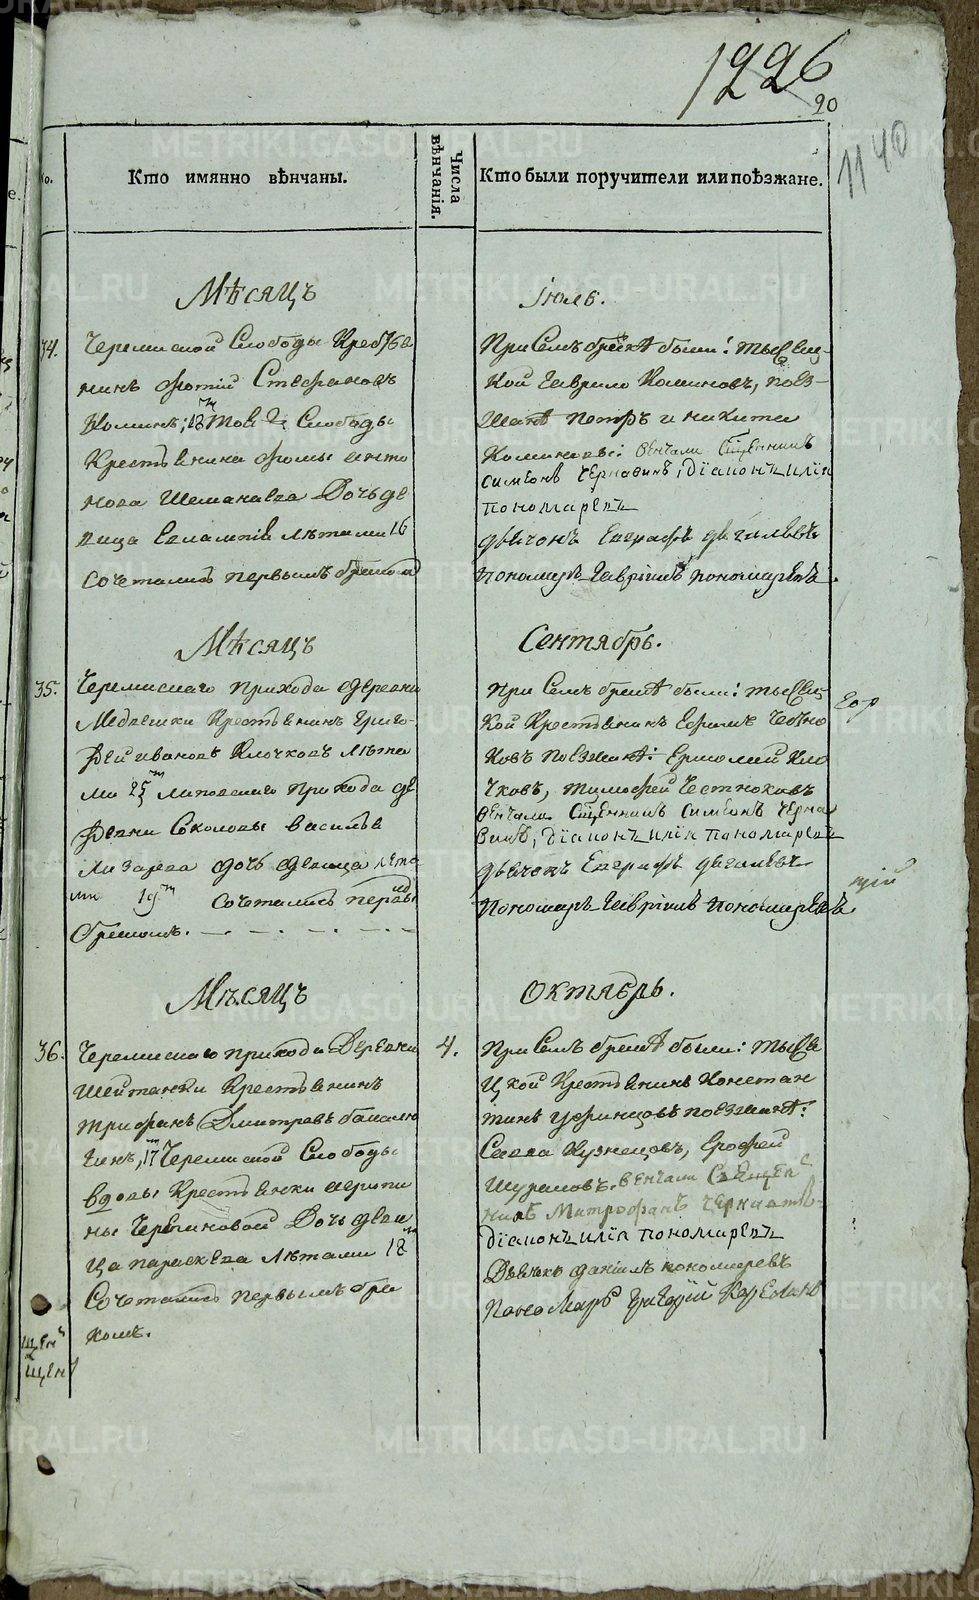 1226
20
1140
Кто имянно вѣнчаны.
Числа вѣнчанія.
Кто были поручители или поѣзжане.
Мѣсяцъ
Іюль.
34.
Черемиской Слободы Крестья
нинъ Фотій Стефановъ
Коминъ, 18 той Слободы
Крестьянина Фомы Анто
нова Шеманаева Дочь де
вица Евлампія лѣтами 16
Сочетались первымъ бракомъ
При Семъ бракѣ были: тысец-
кой Гаврило Коминовъ, поез-
жанѣ Петръ и Никита
Коминовы: Венчали Сщенникъ
Симѣонъ Чернавинъ, Діаконъ Илія
Пономаревъ
Дьячокъ Евграфъ Дягилевъ
Пономарь Гавріилъ Пономаревъ.
Мѣсяцъ
Сентябрь.
35.
Черемискаго прихода деревни
Медвешки Крестьянинъ Григо-
рей Ивановъ Клочковъ лѣта
ми 25 Липовскаго прихода де
ревни Соколовы Василья
Лизарева дочь девица лета
ми 19 Сочетались первы
бракомъ.
При Семъ бракѣ были: тысец-
кой Крестьянинъ Ефимъ Честно
ковъ поезжанѣ: Ермолай Кло
чковъ, Тимофей Честноковъ
Венчали Сщенникъ Симѣонъ Черна
винъ, Діаконъ Илія Пономаревъ
Дьячокъ Евграфъ Дягилевъ
Пономарь Гавріилъ Пономаревъ.
Мѣсяцъ
Октябрь.
36.
Черемискаго прихода Деревни
Шайтанки Крестьянинъ
Трифанъ Дмитревъ
17 Черемиской Слободы
вдовы Крестьянки
ны Черемновой Дочь деви
ца Параскева лѣтами 18
Сочетались первымъ бра
комъ.
4.
При Семъ бракѣ были: тысе
цкой Крестьянинъ Констан
тинъ Уфинцовъ поезжанѣ:
Савва Кузнецовъ, Ерофей
Шураловъ. венчали Священ
никъ Митрофанъ Чернавинъ
Діаконъ Илія Пономаревъ
Дьячокъ Даніилъ Пономаревъ
Пономарь Григорій
щій
щен
щен